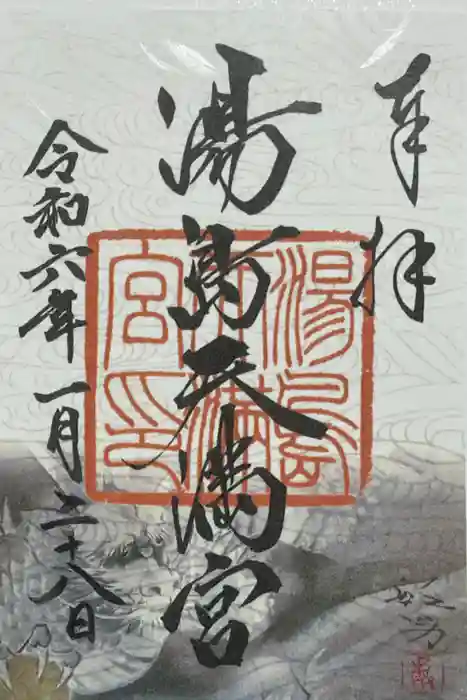 奉拝
湯島天満宮
令和六年一月二十八日
湯島天満宮印